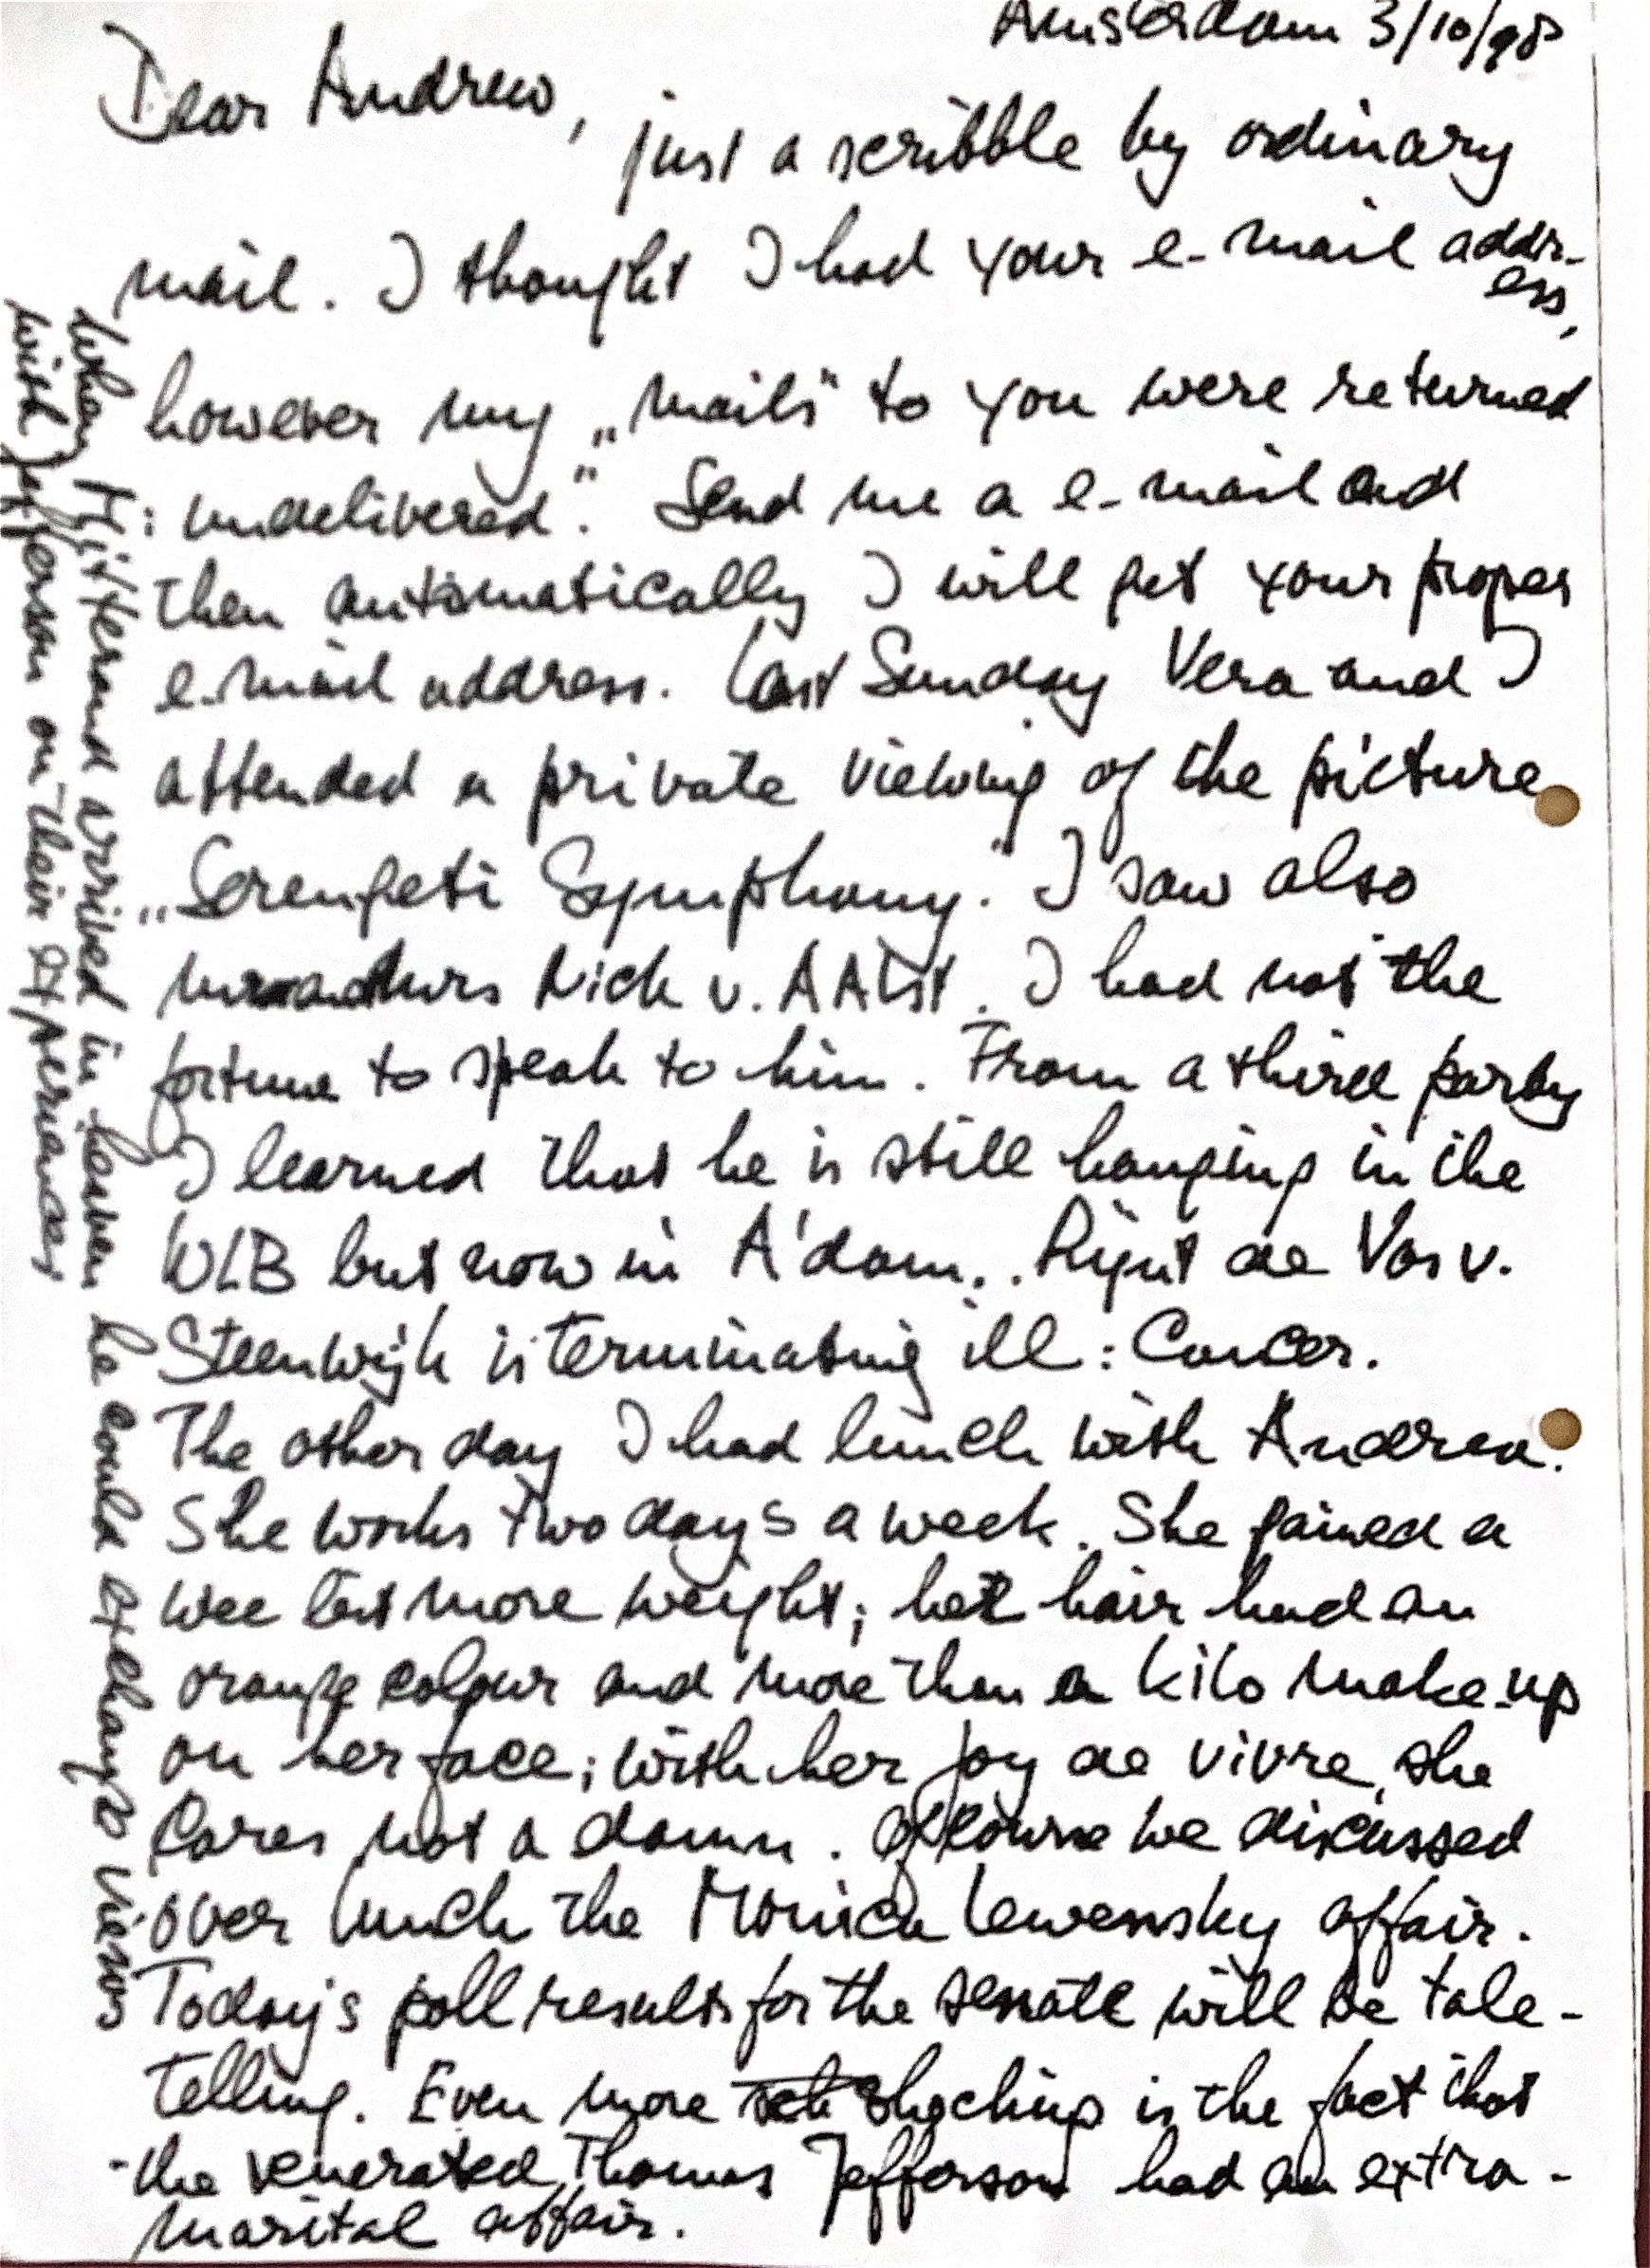 Amsterdam 3/10/98
Dear Andrew,
just a scribble by ordinary
mail. I thought I had your e-mail addr-
ess,
however my „mails" to you were returned
: undelivered." Send me a e-mail and
then automatically I will get your proper
e-mail address. Last Sunday Vera and I
attended a private viewing of the picture
„Serengeti Symphony." I saw also
Nick v. AAlst. I had not the
fortune to speak to him. From a third party
I learned that he is still hanging in the
WLB but now in A'dam.. Rijnt de Vos v.
Steenwijk is terminating ill: Cancer.
The other day I had lunch with Andrea.
She works two days a week. She gained a
wee bit more weight; her hair had an
orange colour and more than a kilo make-up
on her face; with her joy de vivre, she
cares not a damn. Of course we discussed
over lunch the Monica Lewensky affair.
Today's poll results for the senate will be tale-
telling. Even more shocking is the fact that
the venerated Thomas Jefferson had an extra-
marital affair.
When Mitterand arrived in heaven he could exchange views
with Jefferson on their experiences